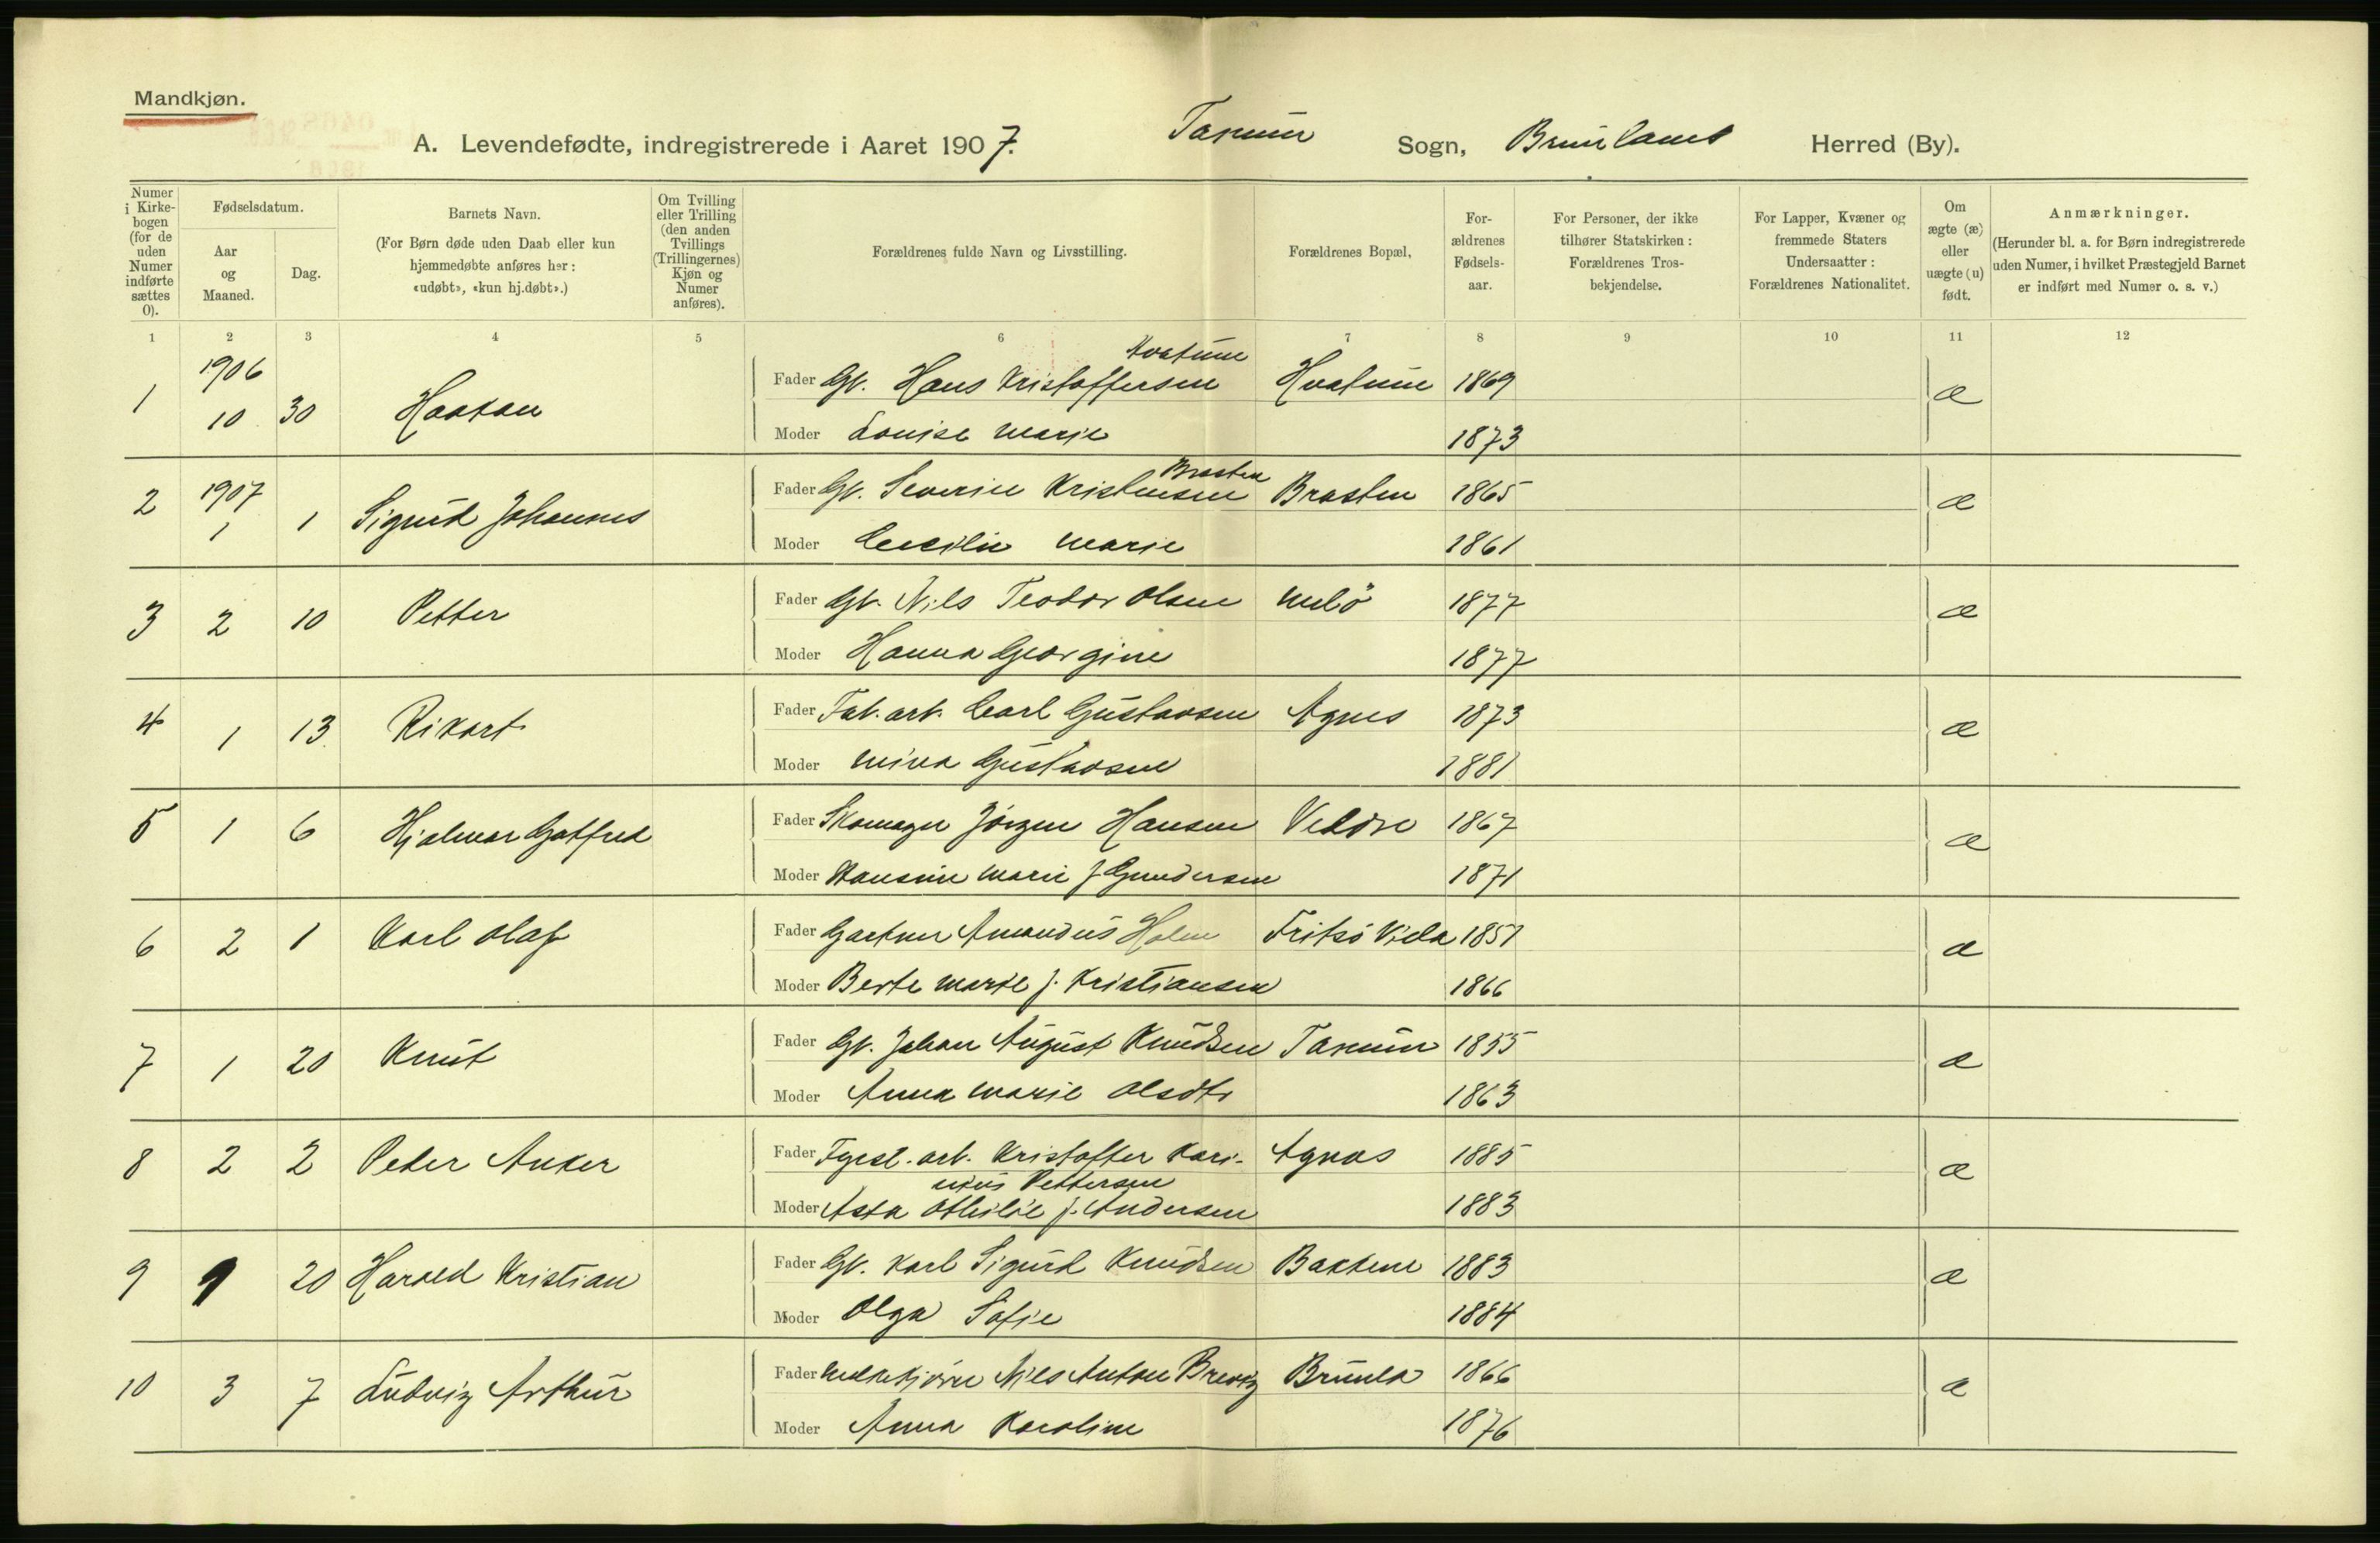 Mandkjøn.
A. Levendefødte, indregistrerede i Aaret 1907. Tanum Sogn, Brunlanes Herred (By).
Numer i Kirkebogen (for de uden Numer indførte sættes 0).
Fødselsdatum.
Aar og Maaned.
Dag.
Barnets Navn.
(For Børn døde uden Daab eller kun hjemmedøbte anføres her: «udøbt», «kun hj.døbt».)
Om Tvilling eller Trilling (den anden Tvillings (Trillingernes) Kjøn og Numer anføres).
Forældrenes fulde Navn og Livsstilling.
Forældrenes Bopæl,
Forældrenes Fødselsaar.
For Personer, der ikke tilhører Statskirken: Forældrenes Trosbekjendelse.
For Lapper, Kvæner og fremmede Staters Undersaatter: Forældrenes Nationalitet.
Om ægte (æ) eller uægte (u) født.
Anmærkninger.
(Herunder bl. a. for Børn indregistrerede uden Numer, i hvilket Præstegjeld Barnet er indført med Numer o. s. v.)
1 2 3 4 5 6 7 8 9 10 11 12
1 1906 10 30 Haakon Fader Gb. Hans Kristoffersen Hvatum Hvatum 1869 æ
Moder Louise Marie 1873
2 1907 1 1 Sigurd Johannes Fader Gb. Severin Kristensen Brasten Brasten 1865 æ
Moder Cecilie Marie 1861
3 2 10 Petter Fader Gb. Nils Teodor Olsen Melö 1877 æ
Moder Hanna Georgine 1877
4 1 13 Rikart Fader Fab. arb. Carl Gustavsen Agnes 1873 æ
Moder Mina Gustavsen 1881
5 1 6 Hjalmar Gotfred Fader Skomager Jörgen Hansen Veldre 1867 æ
Moder Hansine Marie f Gundersen 1871
6 2 1 Karl Olaf Fader Gartner Amandus Holm Fritsö Viela 1851 æ
Moder Berte Marie f. Kristiansen 1866
7 1 20 Knut Fader Gb. Johan August Knudsen Tanum 1855 æ
Moder Anna Marie Olsdtr 1863
8 2 2 Peder Anker Fader Fyrst. arb. Kristoffer Kari-
nius Pettersen Agnes 1885 æ
Moder Asta Othilie f. Andersen 1883
9 1 20 Harald Kristian Fader Gb. Karl Sigurd Knudsen Bakkene 1883 æ
Moder Olga Sofie 1884
10 3 7 Ludvig Arthur Fader Nils Anton Brevig Brunla 1866 æ
Moder Anna Karoline 1876